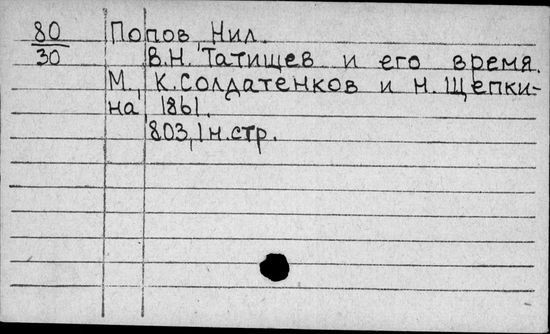 80 Попов Нил.
30 В.Н. Татищев и его время.
М., К. Солдатенков и Н. Щепки-
на, 1861.
803, 1 н. стр.